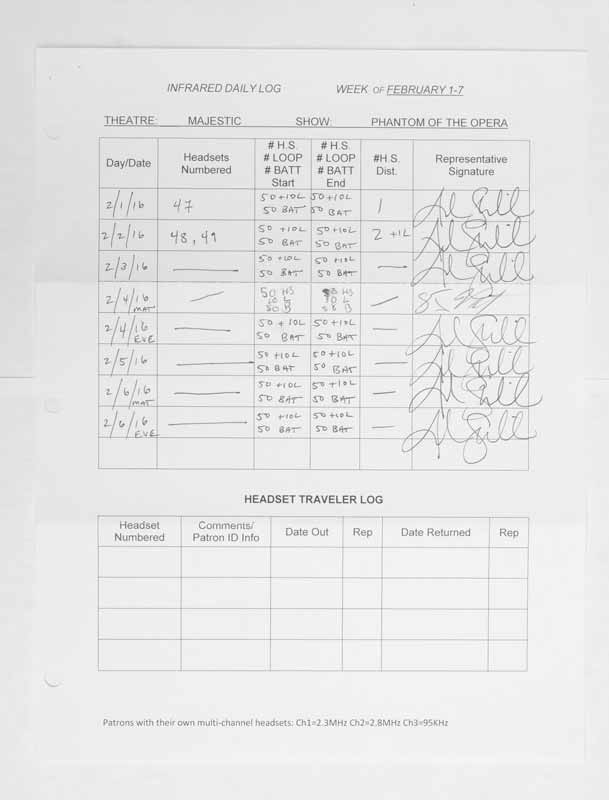 INFRARED DAILY LOG WEEK OF FEBRUARY 1-7
THEATRE: MAJESTIC SHOW: PHANTOM OF THE OPERA
Day/Date
Headsets
Numbered
# H.S.
# LOOP
# BATT
Start
# H.S.
# LOOP
# BATT
End
#H.S.
Dist.
Representative
Signature
2/1/16 47 50 +10L 50+10L 1
50 BAT 50 BAT
2/2/16 48, 49 50 +10L 50 +10L 2 +1L
50 BAT 50 BAT
2/3/16 50 +10L 50 +10L
50 BAT 50 BAT
2/4/16 50 HS HS
MAT 10 L 10 L
50 B 50 B
2/4/16 50 +10L 50 +10L
EVE 50 BAT 50 BAT
2/5/16 50 +10L 50 +10L
50 BAT 50 BAT
2/6/16 50 +10L 50 +10L
MAT 50 BAT 50 BAT
2/6/16 50 +10L 50 +10L
EVE 50 BAT 50 BAT
HEADSET TRAVELER LOG
Headset
Numbered
Comments/
Patron ID Info
Date Out
Rep
Date Returned
Rep
Patrons with their own multi-channel headsets: Ch1=2.3MHz Ch2=2.8MHz Ch3=95KHz